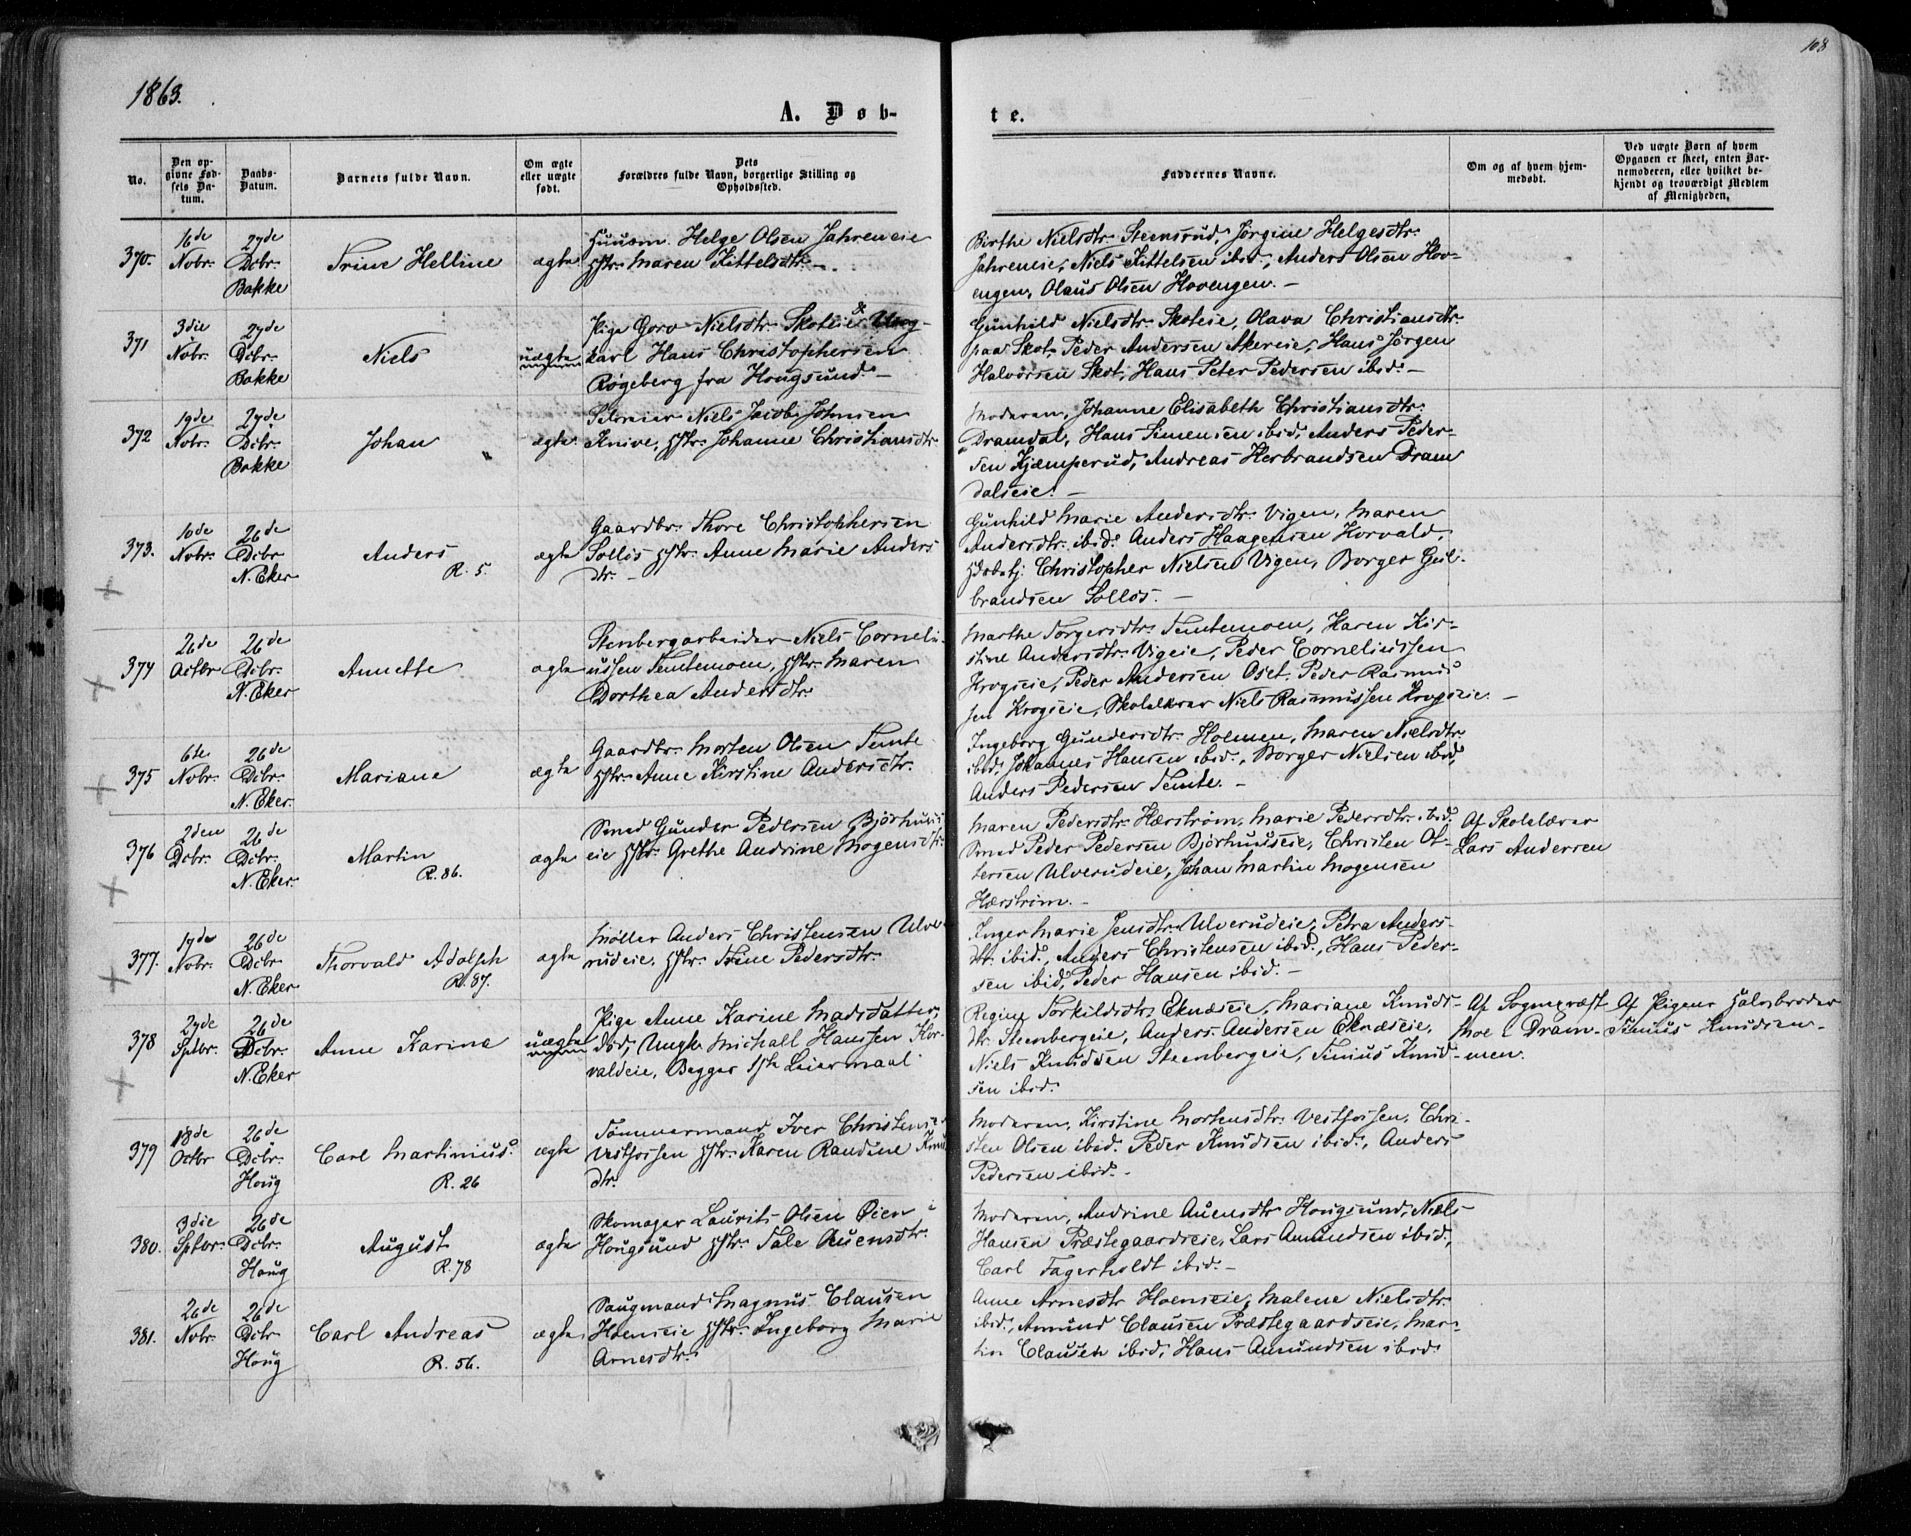 1863.
108
A. Døb-
te.
No.
Den op-
givne Fød-
sels Da-
tum.
Daabs-
Datum.
Barnets fulde Navn.
Om ægte
eller uægte
født.
Dets
Forældres fulde Navn, borgerlige Stilling og
Opholdssted.
Faddernes Navne.
Om og af hvem hjem-
medøbt.
Ved uægte Børn af hvem
Opgaven er skeet, enten Bar-
nemoderen, eller hvilket be-
kjendt og troværdigt Medlem
af Menigheden.
370.
16de
Novbr.
27de
Dcbr.
Bakke
Trine Helline
ægte
Huusm. Helge Olsen Jahreneie
Hstr. Maren Kittelsdtr. —
Birthe Nielsdtr. Steensrud, Jørgine Helgesdtr.
Jahreneie, Niels Kittelsen ibid., Anders Olsen Hov-
engen, Olaus Olsen Hovengen. —
371
3die
Novbr.
27de
Dcbr.
Bakke
Niels
uægte
Pige Goro Nielsdtr. Skoteie & Ung-
karl Hans Christophersen
Røgeberg fra Hougsund. —
Gunhild Nielsdtr. Skoteie, Olava Christiansdtr.
paa Skot, Peder Andersen Akereie, Hans Jørgen
Halvorsen Skot, Hans Peter Pedersen ibid. —
372
19de
Novbr.
27de
Dcbr.
Bakke
Johan
ægte
Niels Jacob Johnsen
Knive, Hstr. Johanne Christiansdtr.
Moderen, Johanne Elisabeth Christiansdtr.
Dramdal, Hans Simensen ibid, Anders Peder-
sen Kjæmperud, Andreas Herbrandsen Dram
dalseie. —
373.
10de
Novbr.
26de
Dcbr
N. Eker
Anders
R. 5.
ægte
Gaardbr. Thore Christophersen
Solløs Hstr. Anne Marie Anders
dtr. —
Gunhild Marie Andersdtr. Vigen, Maren
Andersdtr. ibid. Anders Haagensen Horvald,
Christopher Nielsen Vigen, Borger Gul-
brandsen Solløs. —
374
26de
Octbr
26de
Dcbr.
N. Eker
Annette
ægte
Stenbergarbeider Niels Corneli-
ussen Temtemoen, Hstr. Maren
Dorthea Andersdtr.
Marthe Torgersdtr. Temtemoen, Karen Kir-
stine Andersdtr. Vigeie, Peder Corneliussen
Krogseie, Peder Andersen Oset, Peder Rasmus
sen Krogseie, Skolelærer Niels Rasmussen Krogseie. —
375
6te
Novbr.
26de
Dcbr.
N. Eker.
Mariane
ægte
Gaardbr. Morten Olsen Temte
Hstr. Anne Kirstine Andersdtr.
Ingeborg Gundersdtr. Hoemen, Maren Nielsdtr.
ibid. Johannes Hansen ibid., Borger Nielsen ibid,
Anders Pedersen Temte. —
376
2den
Dcbr.
26de
Dcbr.
N. Eker
Martin
R. 86.
ægte
Smed Gunder Pedersen Bjørhuus
eie Hstr. Grethe Andrine Mogensdtr.
Maren Pedersdtr. Hærstrøm, Marie Pedersdtr. ibid.
Smed Peder Pedersen Bjørhuuseie, Christen Ol-
sersen Ulverudeie, Johan Martin Mogensen
Hærstrøm. —
Af Skolelærer
Lars Andersen
377.
17de
Novbr.
26de
Dcbr
N. Eker
Thorvald Adolph
R. 87.
ægte
Møller Anders Christensen Ulve-
rudeie. Hstr. Trine Pedersdtr.
Inger Marie Jensdtr. Ulverudeie, Petra Anders-
dtr. ibid., Anders Christensen ibid., Hans Peder-
sen ibid, Peder Hansen ibid. —
378
27de
Sptbr.
26de
Dcbr.
N. Eker
Anne Karine
uægte
Pige Anne Karine Madsdatter,
død, Ungk. Michael Hanssen Hor-
valdeie, Begges 1ste Leiermaal
Regine Torkildsdtr. Eknæseie, Mariane Knuds-
dtr. Steenbergeie, Anders Andersen Eknæseie,
Niels Knudsen Steenbergeie, Tinius Knud-
sen ibid.
Af Sogneprest
Moe i Dram-
men.
Af Pigens Halvbroder
Tinius Knudsen —
379
18de
Octbr
26de
Dcbr.
Houg
Carl Martinius.
R. 26
ægte
Tømmermand Iver Christensen
Vestfossen Hstr. Karen Randine Knu
dtr.
Moderen, Kirstine Mortensdtr. Vestfossen, Chri-
sten Olsen ibid. Peder Knudsen ibid., Anders
Pedersen ibid. —
380.
3die
Sptbr.
26de
Dcbr.
Houg
August
R. 78
ægte
Skomager Laurits Olsen Øien i
Hougsund Hstr. Tale Auensdtr.
Moderen, Andrine Auensdtr Hougsund, Niels
Hansen Præstegaardseie, Lars Amundsen ibid,
Carl Fagerholdt ibid. —
381.
26de
Novbr.
26de
Dcbr
Houg
Carl Andreas
R. 56.
ægte
Saugmand Magnus Clausen
Hoenseie Hstr. Ingeborg Marie
Arnesdtr.
Anne Arnesdtr Hoenseie, Malene Nielsdtr.
ibid., Amund Clausen Præstegaardseie, Mar-
tin Clausen ibid, Hans Amundsen ibid.